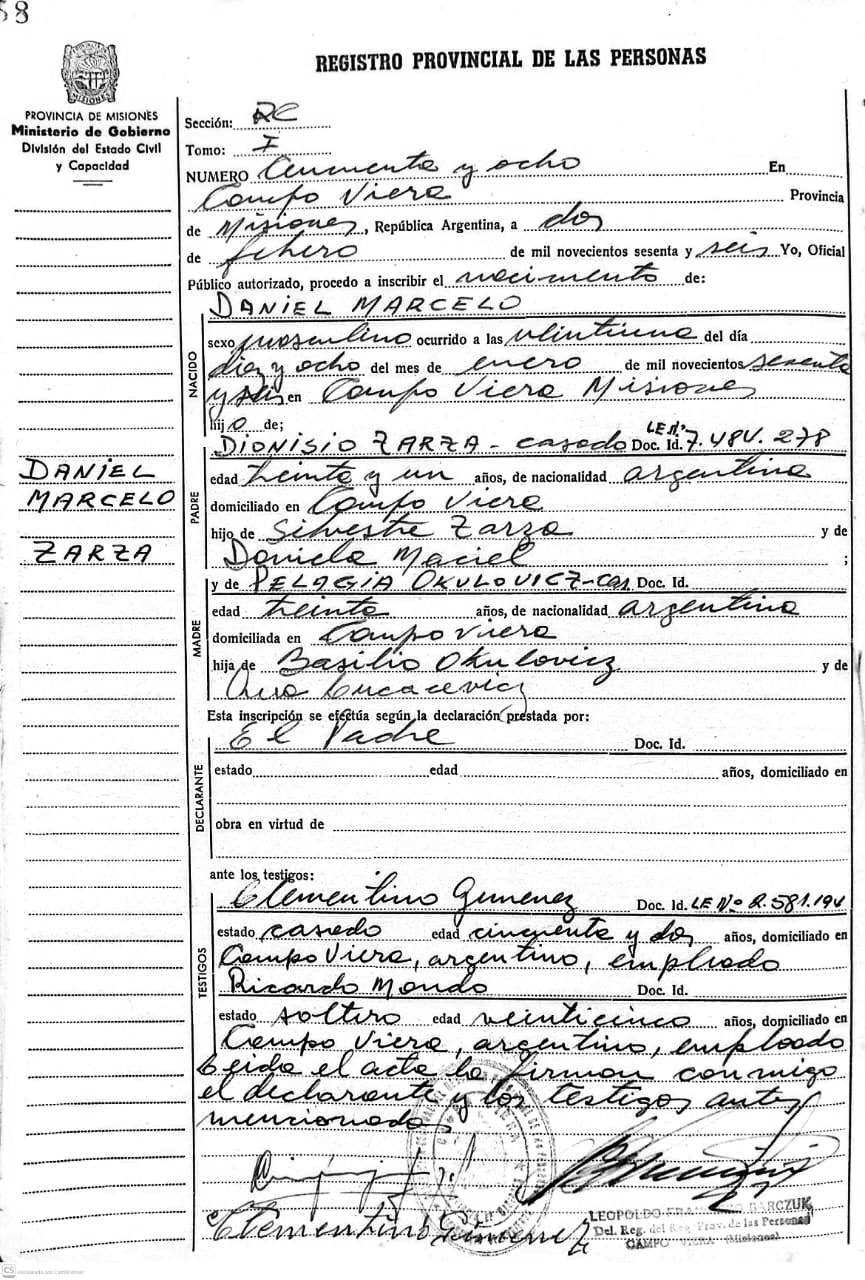 58
REGISTRO PROVINCIAL DE LAS PERSONAS
MISIONES
PROVINCIA DE MISIONES
Ministerio de Gobierno
División del Estado Civil
y Capacidad
DANIEL
MARCELO
ZARZA
Sección: RC
Tomo: I
NUMERO Cincuenta y ocho En
Campo Viera Provincia
de Misiones, República Argentina, a dos
de febrero de mil novecientos sesenta y seis Yo, Oficial
Público autorizado, procedo a inscribir el nacimiento de:
NACIDO
DANIEL MARCELO
sexo masculino ocurrido a las veintiuna del día
diez y ocho del mes de enero de mil novecientos sesenta
y seis en Campo Viera Misiones
hijo de;
PADRE
DIONISIO ZARZA - casado Doc. Id. LE Nº 7.484.278
edad treinta y un años, de nacionalidad argentina
domiciliado en Campo Viera
hijo de Silvestre Zarza y de
Daniela Maciel ;
MADRE
y de PELAGIA OKULOVICZ-cas Doc. Id.
edad treinta años, de nacionalidad argentina
domiciliada en Campo Viera
hija de Basilio Okulovicz y de
Ana
Esta inscripción se efectúa según la declaración prestada por:
DECLARANTE
El Padre Doc. Id.
estado edad años, domiciliado en
obra en virtud de
ante los testigos:
TESTIGOS
Clementino Gimenez Doc. Id. LE Nº 2.581.194
estado casado edad cincuenta y dos años, domiciliado en
Campo Viera, argentino, empleado
Ricardo Mondo Doc. Id.
estado soltero edad veinticinco años, domiciliado en
Campo Viera, argentino, empleado
Leida el acta la firman conmigo
el declarante y los testigos antes
mencionados
Clementino Gimenez
LEOPOLDO BARCZUK
Del. Reg. del Reg. Prov. de las Personas
CAMPO VIERA (Misiones)
CS Escaneado con CamScanner